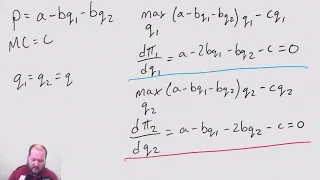 p = a - bq₁ - bq₂
MC = C
q₁ = q₂ = q
max (a - bq₁ - bq₂)q₁ - cq₁
q₁
dπ₁/dq₁ = a - 2bq₁ - bq₂ - c = 0
max (a - bq₁ - bq₂)q₂ - cq₂
q₂
dπ₂/dq₂ = a - bq₁ - 2bq₂ - c = 0